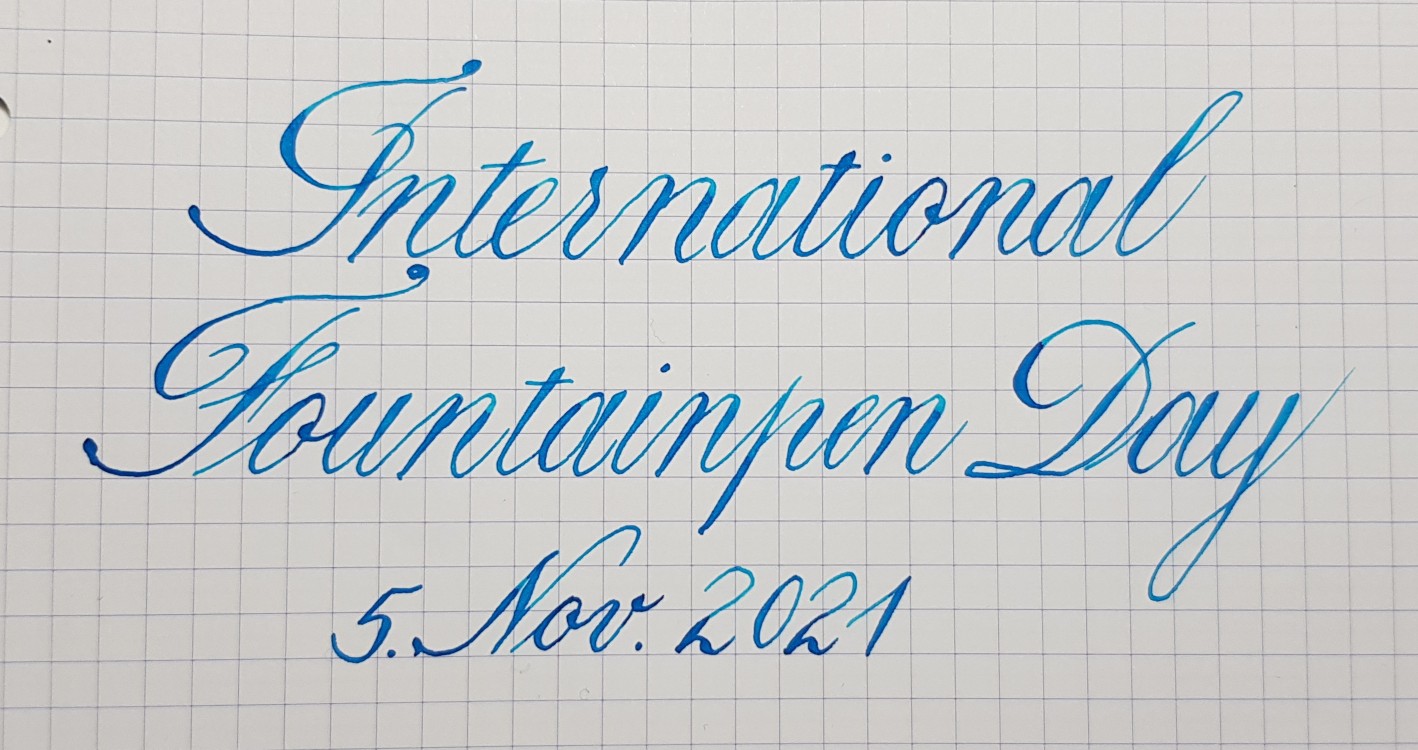 International
Fountainpen Day
5. Nov. 2021